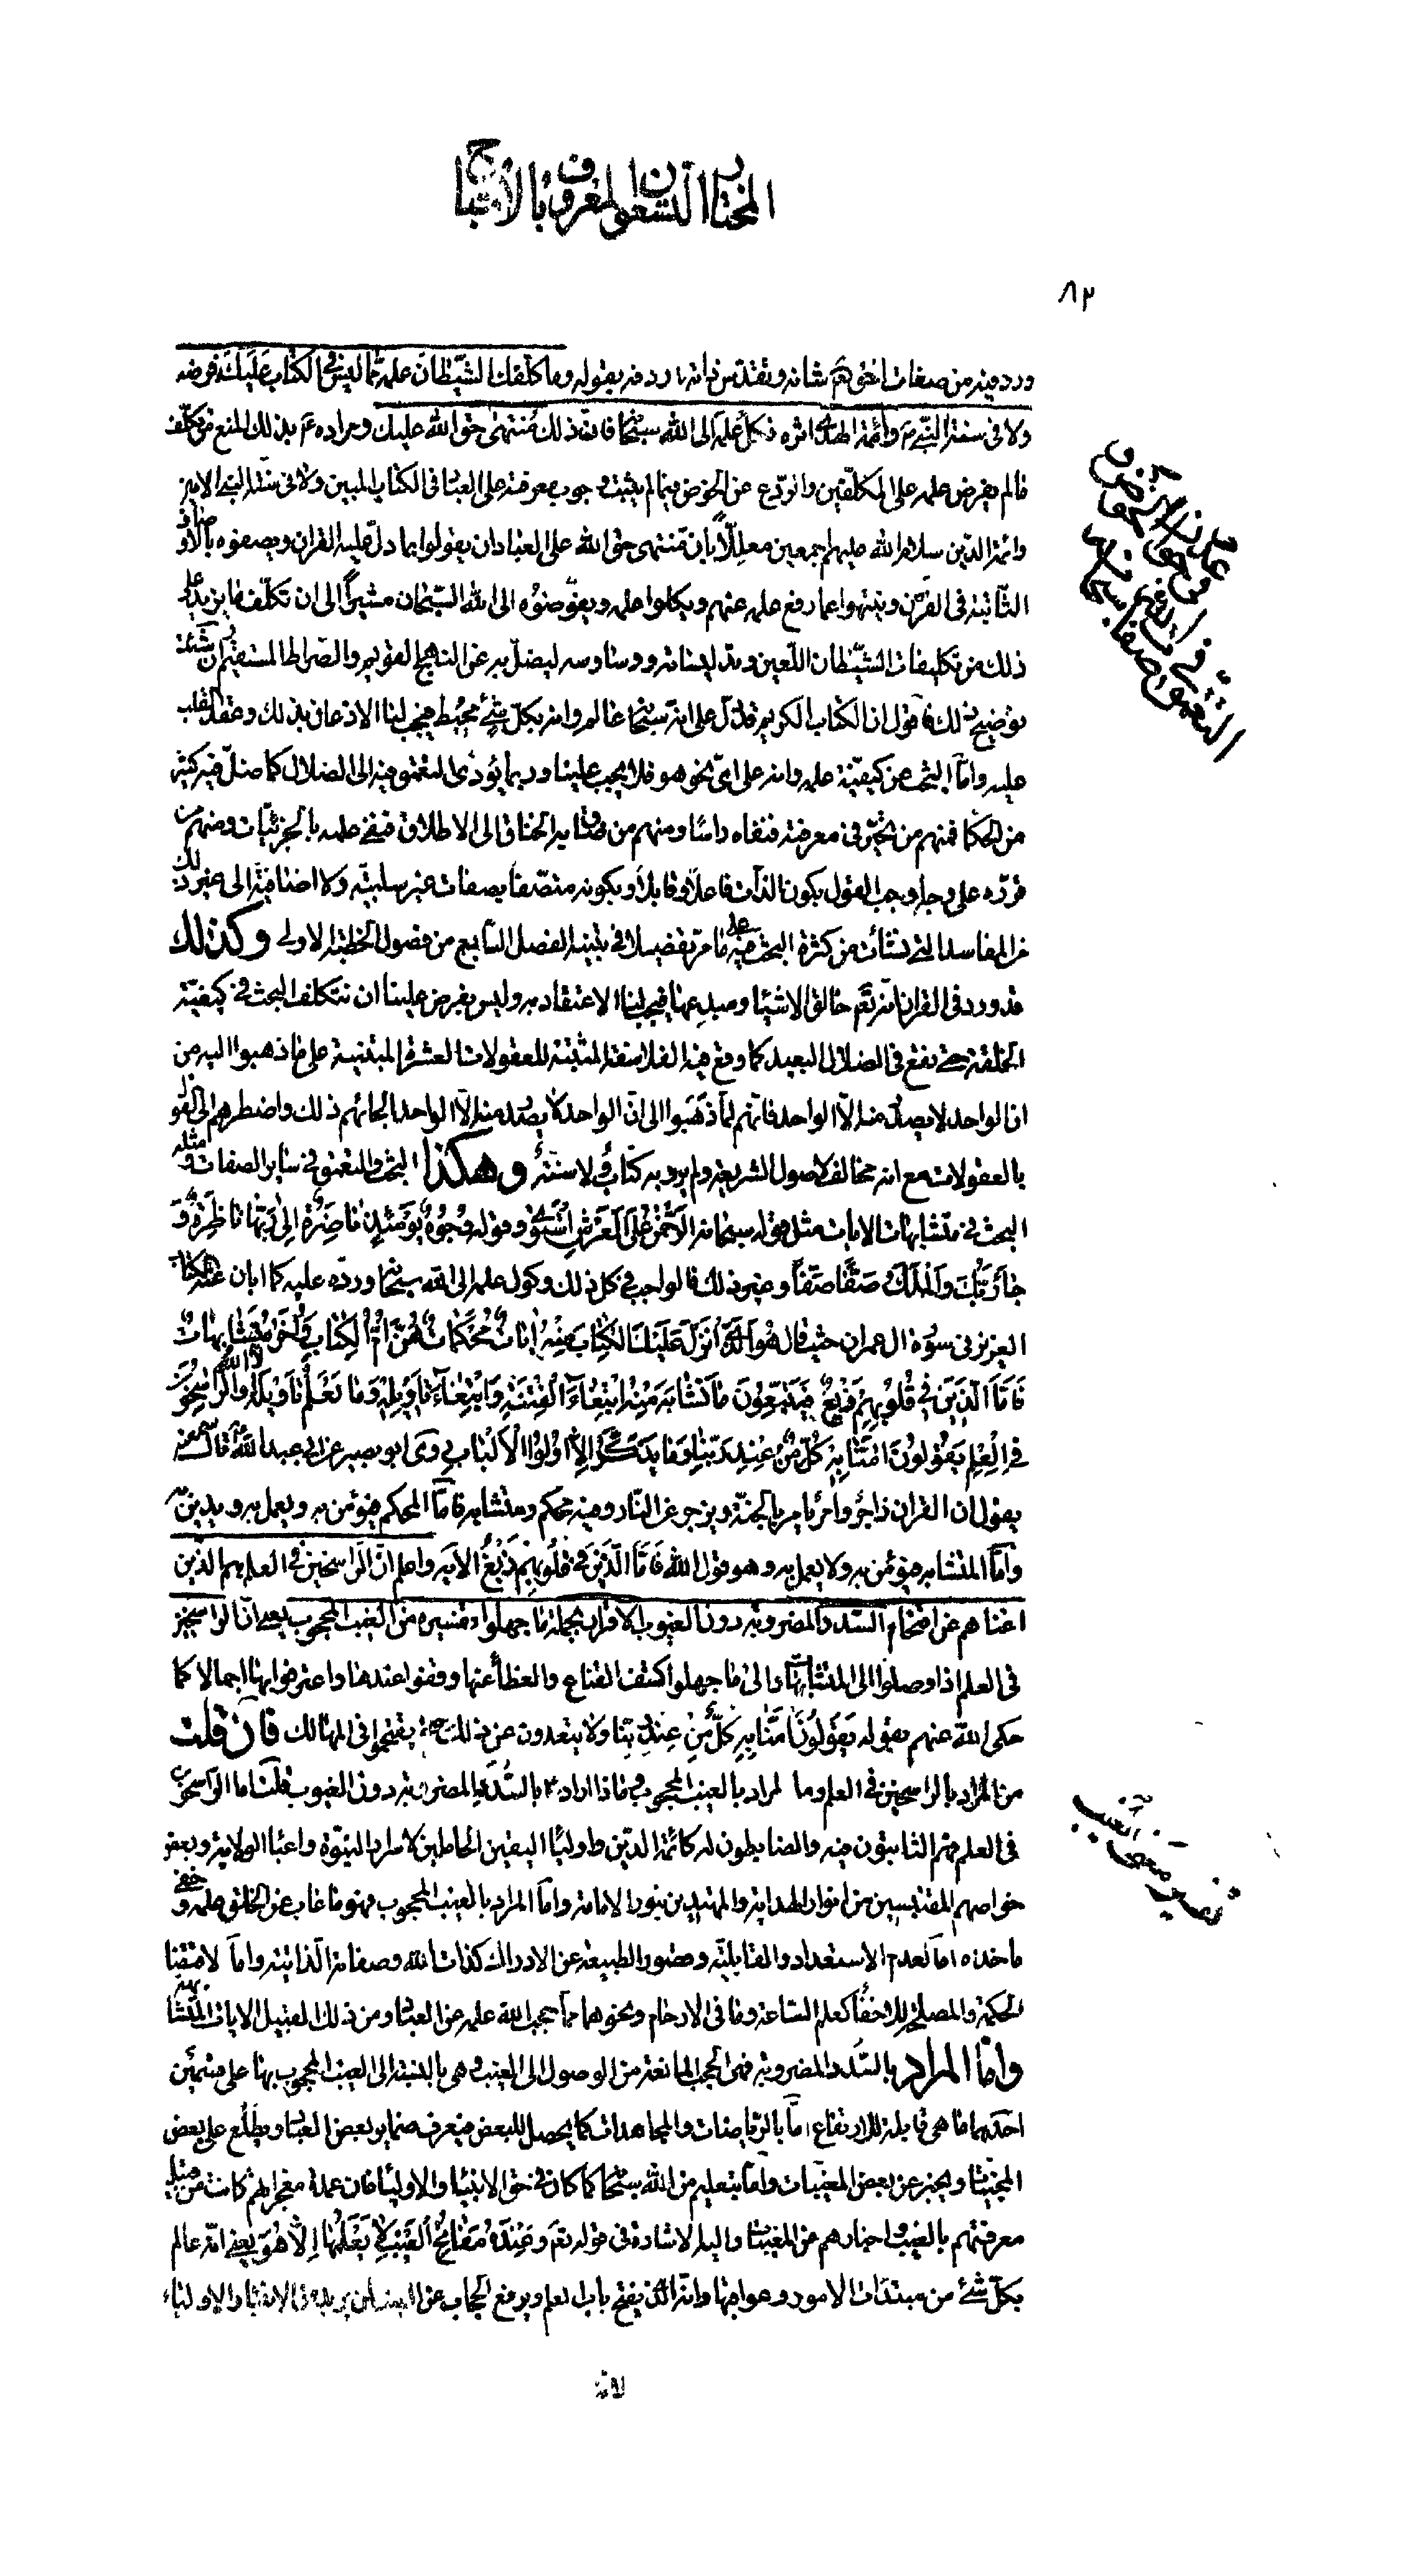 المختار التسعون المعروف بالأشباح
٨٢
ورد فيه من صفات الحق شانه وتقدس ذاته اردفه بقوله وما كلّفك الشّيطان علمه ممّا ليس فى الكتاب عليك فرضه
ولا فى سنّة النّبىّ ص وائمّة الهدى اثره فكل علمه الى الله سبحانه فانّ ذلك مُنتهى حقّ الله عليك ومراده ع بذلك المنع من تكلّف
ما لم يفرض علمه على المكلّفين والردع عن الخوض فيما لم يثبت وجوب معرفته على العباد فى الكتاب المبين ولا فى سنّة النبى الامين
وائمّة الدّين سلام الله عليهم اجمعين معلّلاً بان منتهى حقّ الله على العباد ان يقولوا بما دلّ عليه القران ويصفوه بالاوصاف
الثابتة فى القران وينتهوا عما رفع علمه عنهم ويكلوا علمه ويفوّضوه الى الله السّبحان مشيراً الى ان تكلّف ما يزيد على
ذلك من تكليفات الشّيطان اللّعين وتدليساته ووساوسه ليضلّ به عن النهج القويم والصّراط المستقيم ان شئت
توضيح ذلك فاقول ان الكتاب الكريم قد دلّ على انّه سبحانه عالم وانه بكلّ شئ محيط فيجب لنا الاذعان بذلك وعقد القلب
عليه وامّا البحث عن كيفيّة علمه وانه على اىّ نحو هو فلا يجب علينا وربما يؤدّى التعمّق فيه الى الضلال كما ضلّ فيه كثير
من الحكماء فمنهم من تحيّر فى معرفته فنفاه راسًا ومنهم من ضاق به الخناق الى الاطلاق فنفى علمه بالجزئيّات ومنهم من
قرّره على وجه أوجب القول بكون الذّات فاعلاً وقابلاً وبكونه متّصفاً بصفات غير سلبيّة ولا اضافيّة الى غير ذلك
من المفاسد الّتى نشأت من كثرة البحث فيه على ما مرّ تفصيلا فى تنبيه الفصل السّابع من فصول الخطبة الاولى وكذلك
قد ورد فى القران انّه تعم خالق الاشياء ومبدعها فيجب لنا الاعتقاد به وليس يفرض علينا ان نتكلّف البحث فى كيفيّة
الخلقة حتى نقع فى الضلال البعيد كما وقع فيه الفلاسفة المثبتة للعقولات العشرة المبتنية على ما ذهبوا اليه من
ان الواحد لا يصدر منه الّا الواحد فانّهم لمّا ذهبوا الى انّ الواحد لا يصدر منه الّا الواحد الجائهم ذلك واضطرهم الى القول
بالعقولات مع انه مخالف لاصول الشريعة ولم يرد به كتاب ولا سنّة وهكذا البحث والتعمّق فى ساير الصفات ومثله
البحث فى متشابهات الايات مثل قوله سبحانه الرّحمن على العرش استوى وقوله وُجُوهٌ يَومَئِذٍ ناضِرَةٌ اِلى رَبِّها ناظِرَةٌ وَ
جاءَ رَبُّكَ وَالمَلَكُ صَفًّا صَفًّا وغير ذلك فالواجب فى كل ذلك وكول علمه الى الله سبحانه وردّه عليه كما ابان عنه الكتاب
العزيز فى سورة ال عمران حيث قال هُوَ الَّذى اَنزَلَ عَلَيكَ الكِتابَ مِنهُ اياتٌ مُحكَماتٌ هُنَّ اُمُّ الكِتابِ وَاُخَرُ مُتَشابِهاتٌ
فَاَمّا الَّذينَ فى قُلُوبِهِم زَيغٌ فَيَتَّبِعُونَ ما تَشابَهَ مِنهُ ابتِغاءَ الفِتنَةِ وَابتِغاءَ تَاويلِهِ وَما يَعلَمُ تَاويلَهُ اِلَّا اللهُ وَالرّاسِخُونَ
فِى العِلمِ يَقُولُونَ امَنّا بِهِ كُلٌّ مِن عِندِ رَبِّنا وَما يَذَّكَّرُ اِلّا اُولُوا الاَلبابِ روى ابو بصير عن ابى عبد الله ع قال سمعته
يقول ان القران زاجر وامر يامر بالجنّة ويزجر عن النّار وفيه محكم ومتشابه فامّا المحكم فيؤمن به ويعمل به ويدين به
وامّا المتشابه فيؤمن به ولا يعمل به وهو قول الله فَاَمّا الَّذينَ فى قُلُوبِهِم زَيغٌ الاية واعلم انّ الرّاسخين فى العلم هم الّذين
اغناهم عن اقتحام السّدد المضروبة دون الغيوب الاقرار بجملة ما جهلوا تفسيره من الغيب المحجوب يعنى انّ الراسخين
فى العلم اذا وصلوا الى المتشابهات والى ما جهلوا كشف القناع والغطاء عنها وقفوا عندها واعترفوا بها اجمالا كما
حكى الله عنهم بقوله يَقُولُونَ امَنّا بِهِ كُلٌّ مِن عِندِ رَبِّنا ولا يتعدون عن ذلك حتى يقتحموا فى المهالك فان قلت
من المراد بالراسخين فى العلم وما المراد بالغيب المحجوب وماذا اراد ع بالسُّدَد المضروبة دون الغيوب قلت اما الرّاسخون
فى العلم فهم الثابتون فيه والضابطون له كائمّة الدّين واولياء اليقين الحاملين لاسرار النبوّة واعباء الولاية وبعض
خواصهم المقتبسين من انوار الهداية والمهتدين بنور الامامة وامّا المراد بالغيب المحجوب فهو ما غاب عن الخلق علمه وخفى
ماخذه امّا لعدم الاستعداد والقابليّة وقصور الطبيعة عن الادراك كذات الله وصفاته الذّاتية وامّا لاقتضاء
الحكمة والمصلحة للاخفاء كعلم السّاعة وما فى الارحام ونحوهما ممّا حجب الله علمه عن العباد ومن ذلك القبيل الايات المتشابهة
وامّا المراد بالسّدد المضروبة فهى الحجب المانعة من الوصول الى الغيب وهى بالنسبة الى الغيب المحجوب بها على قسمين
احدهما ما هى قابلة للارتفاع امّا بالرّياضات والمجاهدات كما يحصل للبعض فيعرف ضماير بعض العباد ويطّلع على بعض
المخبيات ويخبر عن بعض المغيبات وامّا بتعليم من الله سبحانه كما كان فى حق الانبياء والاولياء فان عمدة معجزاتهم كانت من قبيل
معرفتهم بالغيب واخبارهم عن المغيبات واليه الاشارة فى قوله تعم وَعِندَهُ مَفاتِحُ الغَيبِ لا يَعلَمُها اِلّا هُوَ يعنى انّه عالم
بكلّ شئ من مبتدءات الامور وعواقبها وانّه الّذى يفتح باب العلم ويرفع الحجاب عن الغيب لمن يريد من الانبياء والاولياء
لانّه